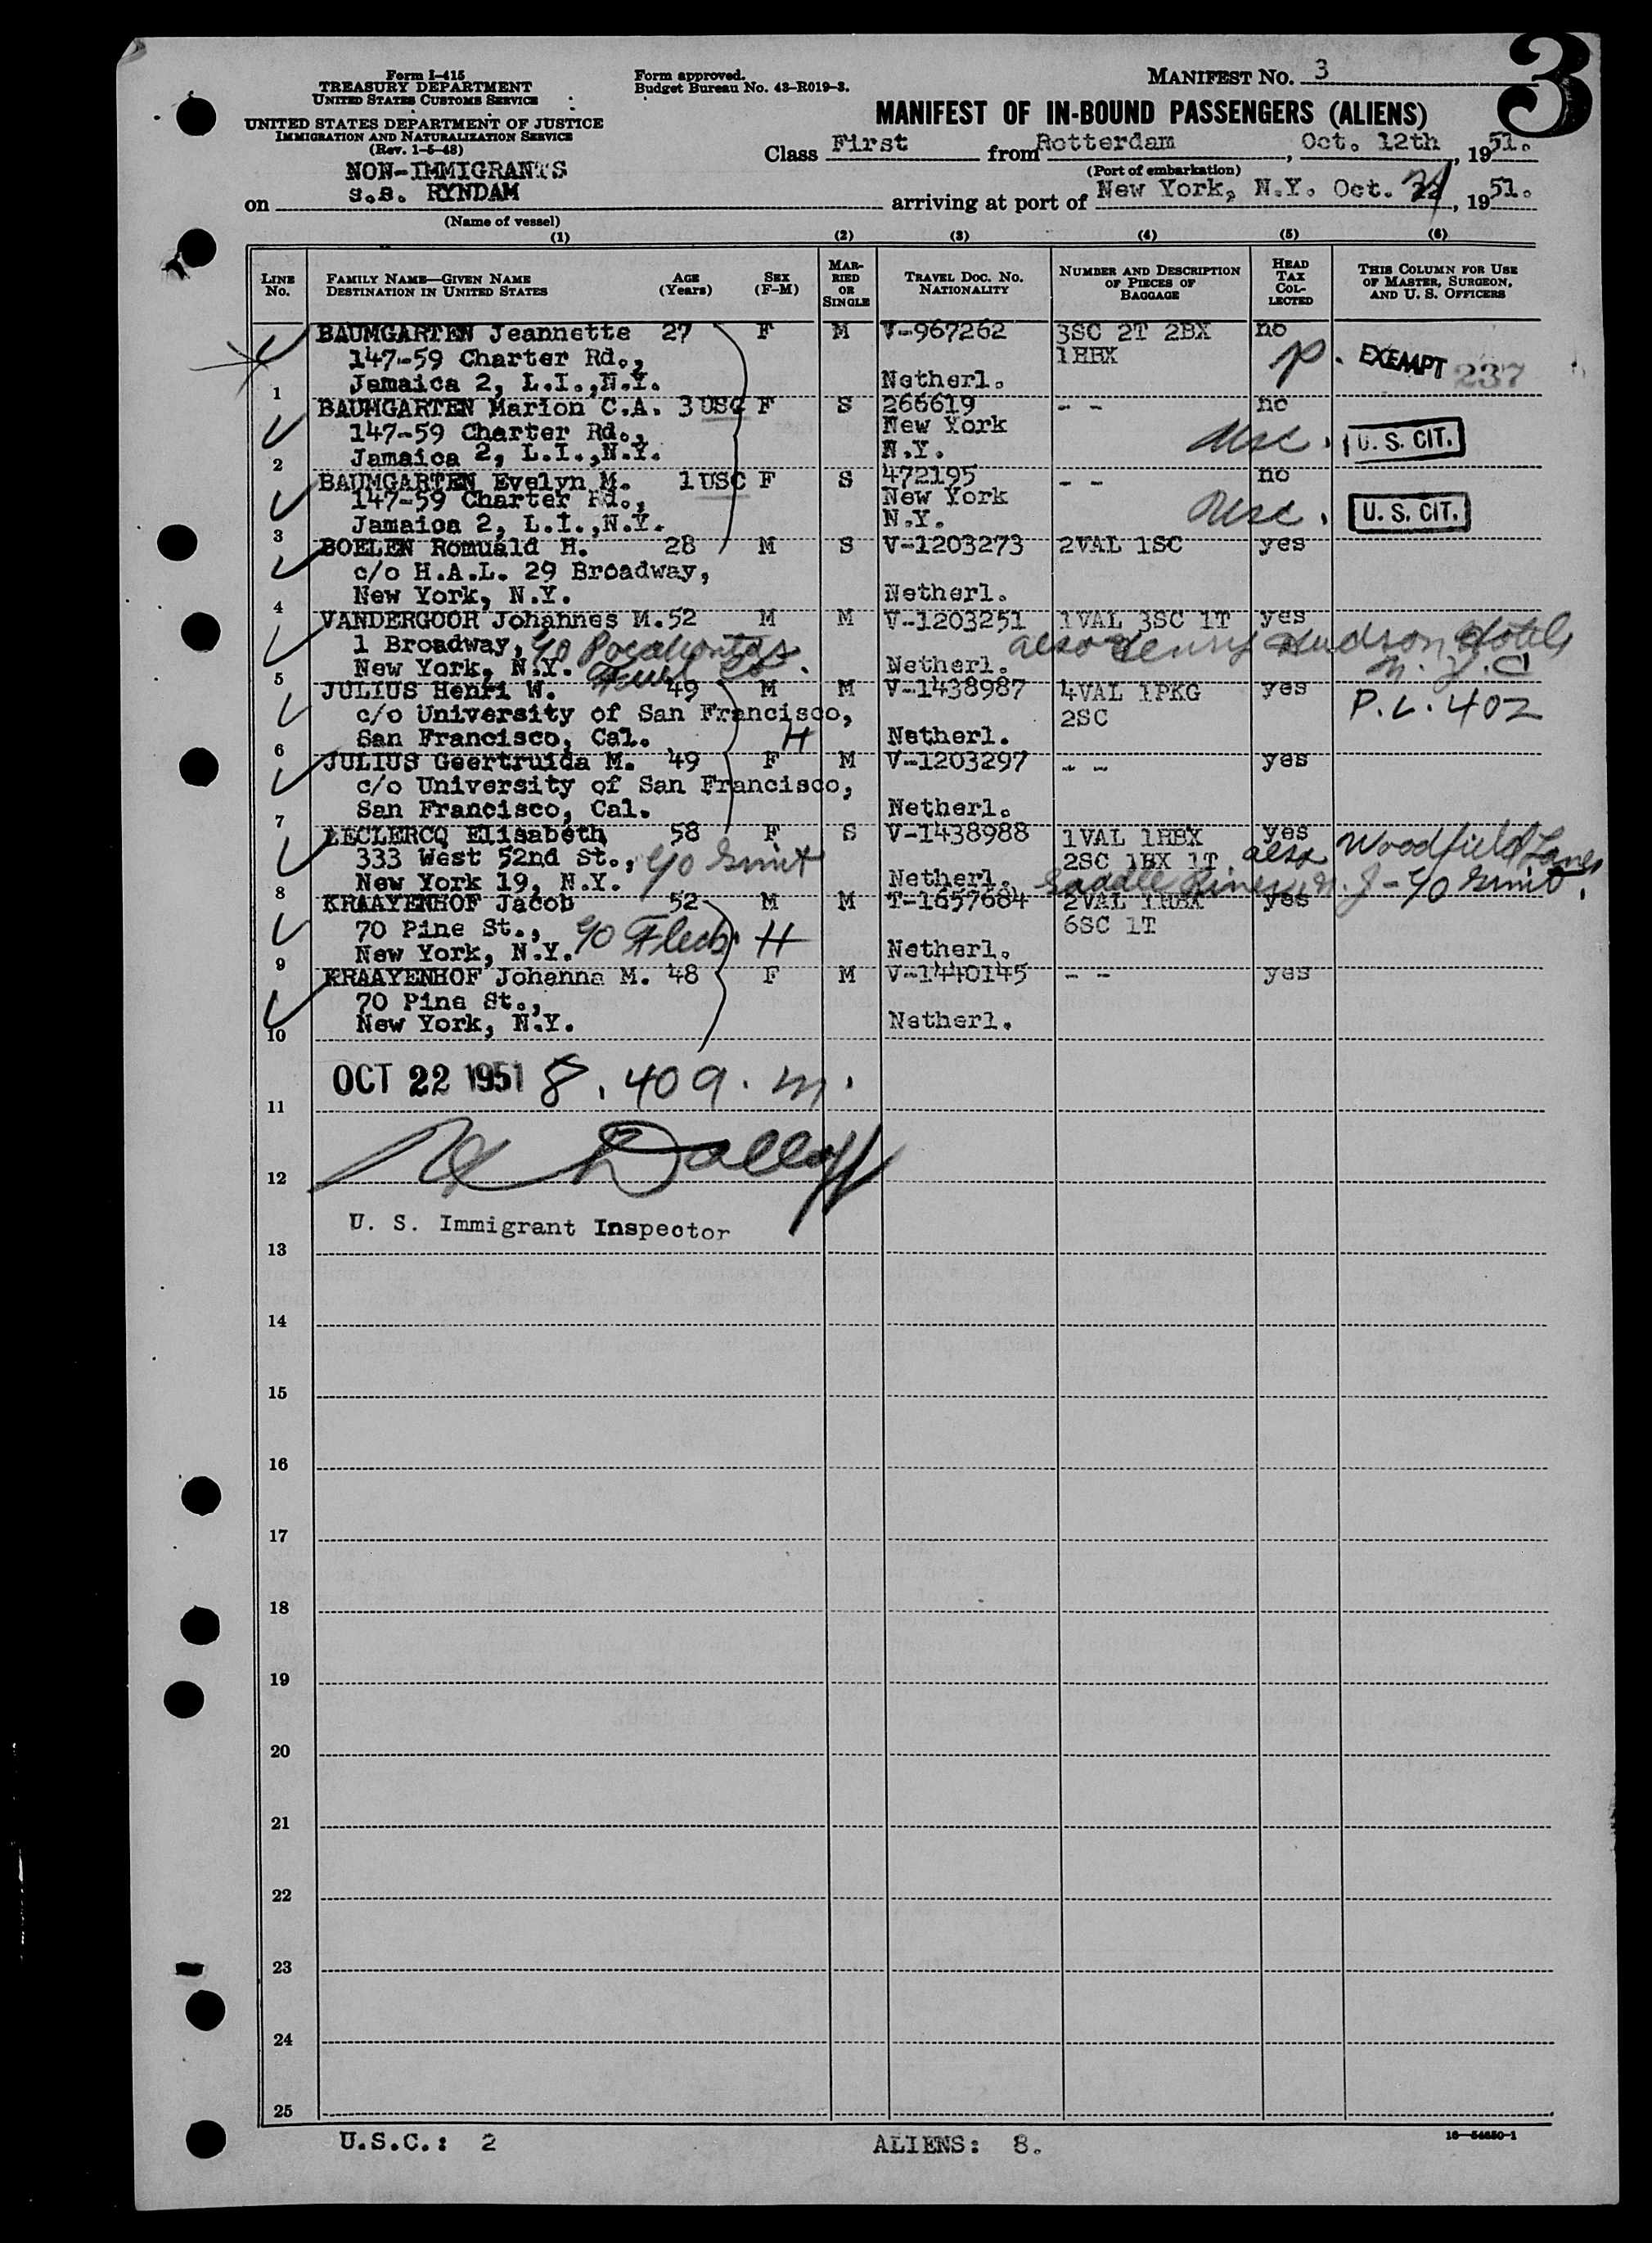 3
Form I-415
TREASURY DEPARTMENT
UNITED STATES CUSTOMS SERVICE
UNITED STATES DEPARTMENT OF JUSTICE
IMMIGRATION AND NATURALIZATION SERVICE
(Rev. 1-5-48)
Form approved.
Budget Bureau No. 43-R019-3.
MANIFEST NO. 3
MANIFEST OF IN-BOUND PASSENGERS (ALIENS)
Class First from Rotterdam, Oct. 12th, 1951.
(Port of embarkation)
NON-IMMIGRANTS
on s.s. RYNDAM arriving at port of New York, N.Y. Oct. 1951.
(Name of vessel)
(1) (2) (3) (4) (5) (6)
LINE NO. FAMILY NAME—GIVEN NAME DESTINATION IN UNITED STATES AGE (Years) SEX (F-M) MARRIED OR SINGLE TRAVEL DOC. NO. NATIONALITY NUMBER AND DESCRIPTION OF PIECES OF BAGGAGE HEAD TAX COLLECTED THIS COLUMN FOR USE OF MASTER, SURGEON, AND U. S. OFFICERS
BAUMGARTEN Jeannette 27 F M V-967262 3SC 2T 2BX no
147-59 Charter Rd., 1HBX p. EXEMPT 237
1 Jamaica 2, L.I.,N.Y. Netherl.
BAUMGARTEN Marion C.A. 3 USC F S 266619 - - no
147-59 Charter Rd., New York usc. U. S. CIT.
2 Jamaica 2, L.I.,N.Y. N.Y.
BAUMGARTEN Evelyn M. 1 USC F S 472195 - - no
147-59 Charter Rd., New York usc. U. S. CIT.
3 Jamaica 2, L.I.,N.Y. N.Y.
BOELEN Romuald H. 28 M S V-1203273 2VAL 1SC yes
c/o H.A.L. 29 Broadway,
4 New York, N.Y. Netherl.
VANDERGOOR Johannes M. 52 M M V-1203251 1VAL 3SC 1T yes
1 Broadway, c/o Pocahontas also Henry Hudson Hotel
5 New York, N.Y. Fuel Co. Netherl. N.Y.C
JULIUS Henri W. 49 M M V-1438987 4VAL 1PKG yes P.L. 402
c/o University of San Francisco, 2SC
6 San Francisco, Cal. H Netherl.
JULIUS Geertruida M. 49 F M V-1203297 - - yes
c/o University of San Francisco,
7 San Francisco, Cal. Netherl.
LECLERCQ Elisabeth 58 F S V-1438988 1VAL 1HBX yes
333 West 52nd St., c/o Smit 2SC 1BX 1T also Woodfield Lane,
8 New York 19, N.Y. Netherl. Saddle River, N.J - c/o Smit.
KRAAYENHOF Jacob 52 M M T-1657684 2VAL 1HBX yes
70 Pine St., c/o H 6SC 1T
9 New York, N.Y. Netherl.
KRAAYENHOF Johanna M. 48 F M V-1440145 - - yes
70 Pine St.,
10 New York, N.Y. Netherl.
OCT 22 1951 8.40 a.m.
11
12
U. S. Immigrant Inspector
13
14
15
16
17
18
19
20
21
22
23
24
25
U.S.C.: 2 ALIENS: 8.
16—54650-1